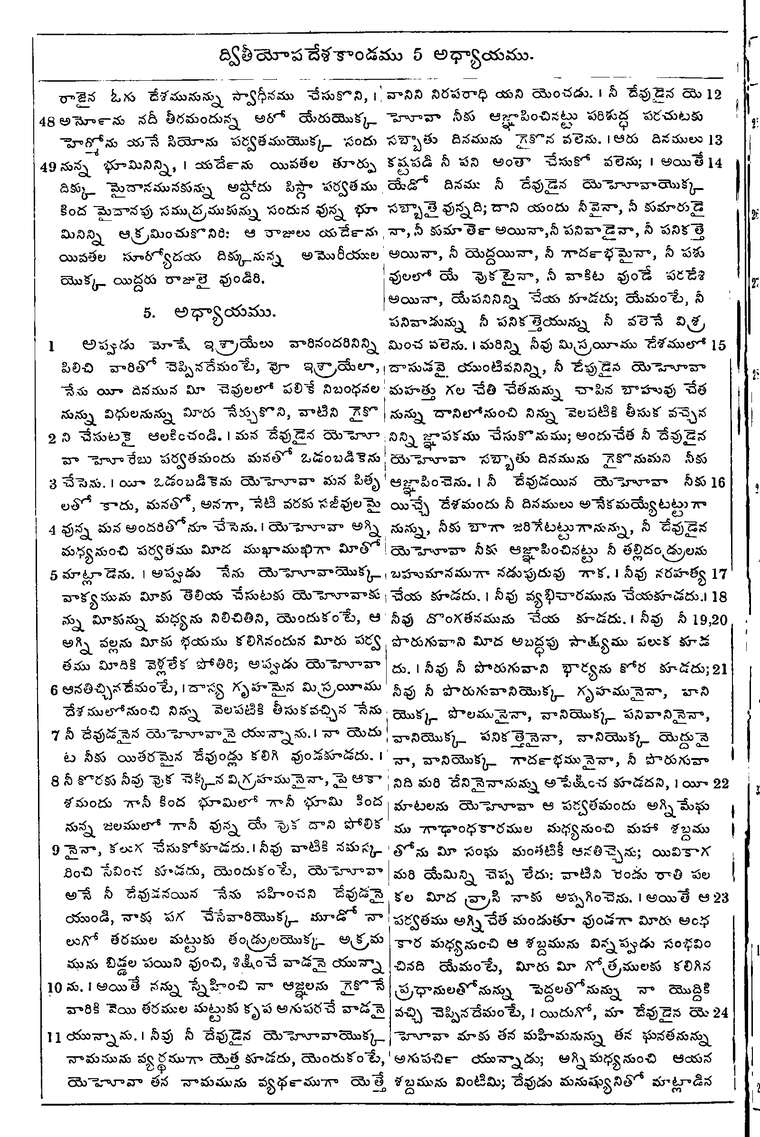 ద్వితీయోపదేశకాండము 5 అధ్యాయము.
రాజైన ఓగు దేశమునున్ను స్వాధీనము చేసుకొని, ।
48 అమో౯ను నదీ తీరమందున్న అరో యేరుయొక్క
హెర్మోను యనే సియోను పర్వతముయొక్క సందు
49 నున్న భూమినిన్ని, । యదేౕను యివతల తూర్పు
దిక్కు మైదానమునకున్ను అష్దోదు పిస్గా పర్వతము
కింద మైదానపు సముద్రమునకున్ను సందున వున్న భూ
మినిన్ని ఆక్రమించుకొనిరి: ఆ రాజులు యదౕను
యివతల సూర్యోదయ దిక్కునున్న అమోరీయుల
యొక్క యిద్దరు రాజులై వుండిరి.
5. అధ్యాయము.
1 అప్పుడు మోషే ఇశ్రాయేలు వారినందరినిన్ని
పిలిచి వారితో చెప్పినదేమంటే, వో ఇశ్రాయేలా,
నేను యీ దినమున మీ చెవులలో పలికే నిబంధనల
నున్ను విధులనున్ను మీరు నేర్చుకొని, వాటిని గైకొ
2 ని చేసుటకై ఆలకించండి. । మన దేవుడైన యెహో
వా హోరేబు పర్వతమందు మనతో ఒడంబడికెను
3 చేసెను. । యీ ఒడంబడికెను యెహోవా మన పితృ
లతో కాదు, మనతో, అనగా, నేటి వరకు సజీవులమై
4 వున్న మన అందరితోనూ చేసెను. । యెహోవా అగ్ని
మధ్యనుంచి పర్వతము మీద ముఖాముఖిగా మీతో
5 మాట్లాడెను. । అప్పుడు నేను యెహోవాయొక్క
వాక్యమును మీకు తెలియ చేసుటకు యెహోవాకు
న్ను మీకున్ను మధ్యను నిలిచితిని, యెందుకంటే, ఆ
అగ్ని వల్లను మీకు భయము కలిగినందున మీరు పర్వ
తము మీదికి వెళ్లలేక పోతిరి; అప్పుడు యెహోవా
6 ఆనతిచ్చినదేమంటే, । దాస్య గృహమైన మిస్రయీము
దేశములోనుంచి నిన్ను వెలపటికి తీసుకవచ్చిన నేను
7 నీ దేవుడనైన యెహోవానై యున్నాను. । నా యెదు
ట నీకు యితరమైన దేవుండ్లు కలిగి వుండకూడదు. ।
8 నీ కొరకు నీవు వొక చెక్కిన విగ్రహమునైనా, పై ఆకా
శమందు గానీ కింద భూమిలో గానీ భూమి కింద
నున్న జలములో గానీ వున్న యే వొక దాని పోలిక
9 నైనా, కలుగ చేసుకోకూడదు. । నీవు వాటికి నమస్క
రించి సేవించ కూడదు, యెందుకంటే, యెహోవా
అనే నీ దేవుడనయిన నేను సహించని దేవుడనై
యుండి, నాకు పగ చేసేవారియొక్క మూడో నా
లుగో తరముల మట్టుకు తండ్రులయొక్క అక్రమ
మును బిడ్డల పయిని వుంచి, శిక్షించే వాడనై యున్నా
10 ను. । అయితే నన్ను స్నేహించి నా ఆజ్ఞలను గైకొనే
వారికి వెయి తరముల మట్టుకు కృప అగుపరచే వాడనై
11 యున్నాను. । నీవు నీ దేవుడైన యెహోవాయొక్క
నామమును వ్యర్థముగా యెత్త కూడదు, యెందుకంటే,
యెహోవా తన నామమును వ్యథ౯ముగా యెత్తే
వానిని నిరపరాధి యని యెంచడు. । నీ దేవుడైన యె 12
హోవా నీకు ఆజ్ఞాపించినట్టు పరిశుద్ధ పరచుటకు
సబ్బాతు దినమును గైకొన వలెను. । ఆరు దినములు 13
కష్టపడి నీ పని అంతా చేసుకో వలెను; । అయితే 14
యేడో దినము నీ దేవుడైన యెహోవాయొక్క
సబ్బాతై వున్నది; దాని యందు నీవైనా, నీ కుమారుడై
నా, నీ కుమాతె౯ అయినా, నీ పనివాడైనా, నీ పనికత్తె
అయినా, నీ యెద్దయినా, నీ గాదభ౯మైనా, నీ పశు
వులలో యే వొకటైనా, నీ వాకిట వుండే పరదేశి
అయినా, యేపనినిన్ని చేయ కూడదు; యేమంటే, నీ
పనివాడున్ను నీ పనికత్తెయున్ను నీ వలెనే విశ్ర
మించ వలెను. । మరిన్ని నీవు మిస్రయీము దేశములో 15
దాసుడవై యుంటివనిన్ని, నీ దేవుడైన యెహోవా
మహత్తు గల చేతి చేతనున్ను చాపిన బాహువు చేత
నున్ను దానిలోనుంచి నిన్ను వెలపటికి తీసుక వచ్చెన
నిన్ని జ్ఞాపకము చేసుకొనుము; అందుచేత నీ దేవుడైన
యెహోవా సబ్బాతు దినమును గైకొనుమని నీకు
ఆజ్ఞాపించెను. । నీ దేవుడయిన యెహోవా నీకు 16
యిచ్చే దేశమందు నీ దినములు అనేకమయ్యేటట్టుగా
నున్ను, నీకు బాగా జరిగేటట్టుగానున్ను, నీ దేవుడైన
యెహోవా నీకు ఆజ్ఞాపించినట్టు నీ తల్లిదండ్రులను
బహుమానముగా నడుపుదువు గాక. । నీవు నరహత్య 17
చేయ కూడదు. । నీవు వ్యభిచారమును చేయకూడదు. । 18
నీవు దొంగతనమును చేయ కూడదు. । నీవు నీ 19,20
పొరుగువాని మీద అబద్ధపు సాక్ష్యము పలుక కూడ
దు. । నీవు నీ పొరుగువాని భార్యను కోర కూడదు; 21
నీవు నీ పొరుగువానియొక్క గృహమునైనా, వాని
యొక్క పొలమునైనా, వానియొక్క పనివానినైనా,
వానియొక్క పనికత్తెనైనా, వానియొక్క యెద్దునై
నా, వానియొక్క గాదభ౯మునైనా, నీ పొరుగువా
నిది మరి దేనినైనానున్ను అపేక్షించ కూడదని, । యీ 22
మాటలను యెహోవా ఆ పర్వతమందు అగ్నిమేఘ
ము గాఢాంధకారముల మధ్యనుంచి మహా శబ్దము
తోను మీ సంఘ మంతటికీ ఆనతిచ్చెను; యివికాగ
మరి యేమిన్ని చెప్ప లేదు: వాటిని రెండు రాతి పల
కల మీద వ్రాసి నాకు అప్పగించెను. । అయితే ఆ 23
పర్వతము అగ్ని చేత మండుతూ వుండగా మీరు అంధ
కార మధ్యనుంచి ఆ శబ్దమును విన్నప్పుడు సంభవిం
చినది యేమంటే, మీరు మీ గోత్రములకు కలిగిన
ప్రధానులతోనున్ను పెద్దలతోనున్ను నా యొద్దికి
వచ్చి చెప్పినదేమంటే, । యిదుగో, మా దేవుడైన యె 24
హోవా మాకు తన మహిమనున్ను తన ఘనతనున్ను
అగుపచి౯ యున్నాడు; అగ్నిమధ్యనుంచి ఆయన
శబ్దమును వింటిమి; దేవుడు మనుష్యునితో మాట్లాడిన